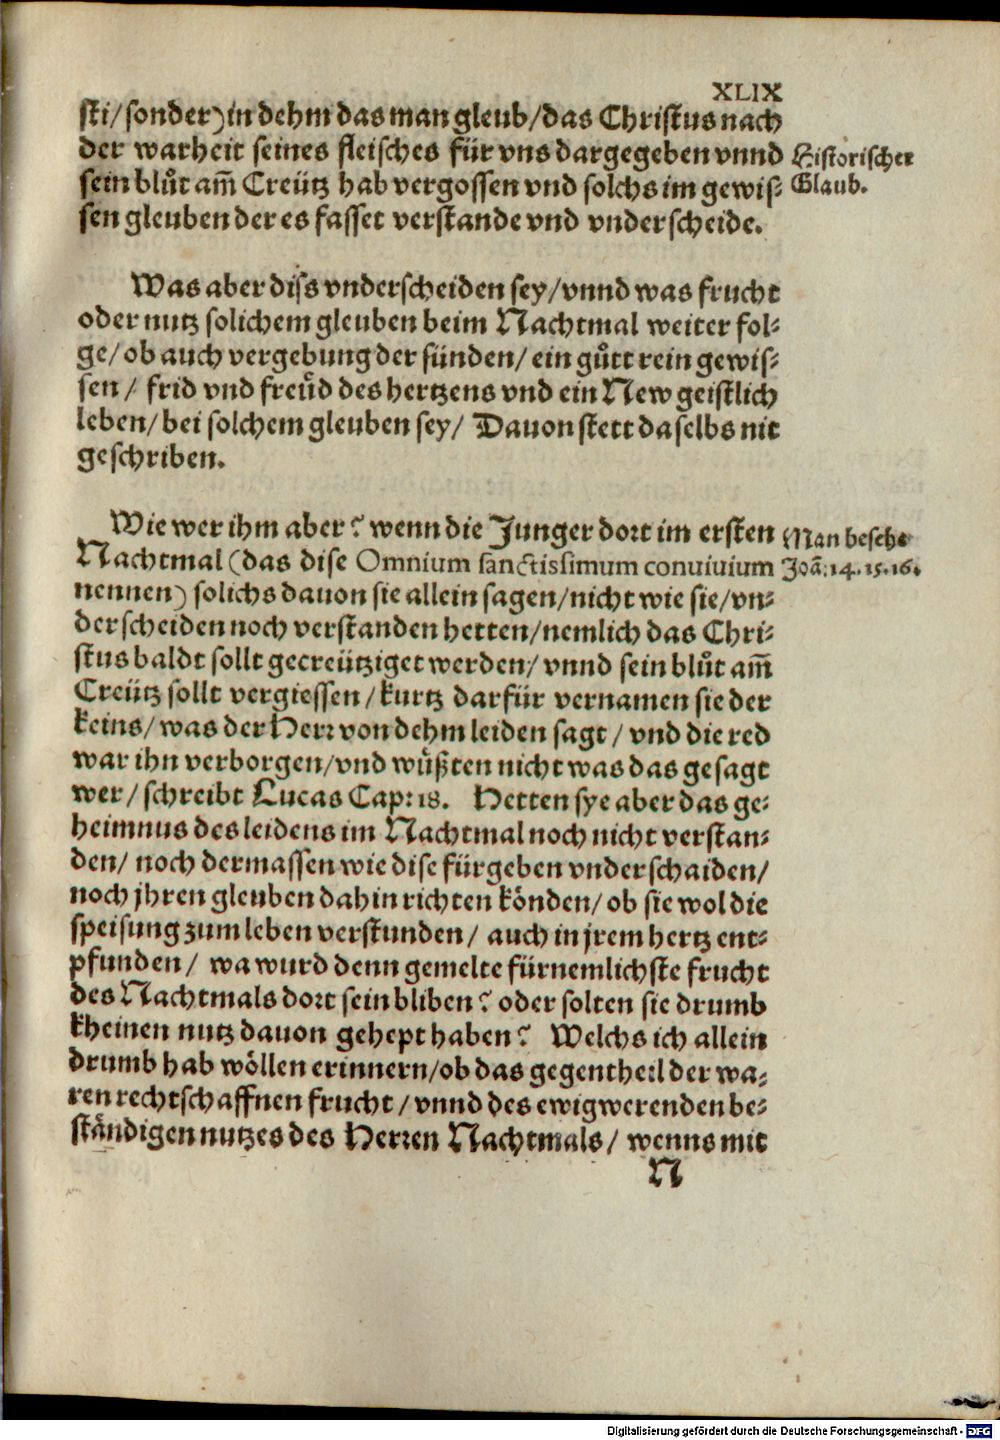 XLIX
sti/sonder) in dehm das man gleub/das Christus nach
der warheit seines fleisches für vns dargegeben vnnd
Historischer
sein blůt am̃ Creütz hab vergossen vnd solchs im gewis-
Glaub.
sen gleuben der es fasset verstande vnd vnderscheide.
Was aber diss vnderscheiden sey/vnnd was frucht
oder nutz solichem gleuben beim Nachtmal weiter fol-
ge/ob auch vergebung der sünden/ein gůtt rein gewis-
sen/ frid vnd freůd des hertzens vnd ein New geistlich
leben/bei solchem gleuben sey/ Dauon stett daselbs nit
geschriben.
Wie wer ihm aber? wenn die Junger dort im ersten
Man besehe
Nachtmal (das dise Omnium sanctissimum conuiuium
Joã: 14. 15. 16.
nennen) solichs dauon sie allein sagen/nicht wie sie/vn-
derscheiden noch verstanden hetten/nemlich das Chri-
stus baldt sollt gecreütziget werden/ vnnd sein blůt am̃
Creütz sollt vergiessen/kurtz darfür vernamen sie der
keins/was der Herr von dehm leiden sagt/ vnd die red
war ihn verborgen/vnd wůßten nicht was das gesagt
wer/schreibt Lucas Cap: 18. Hetten sye aber das ge-
heimnus des leidens im Nachtmal noch nicht verstan-
den/ noch dermassen wie dise fürgeben vnderschaiden/
noch jhren gleuben dahin richten könden/ob sie wol die
speisung zum leben verstunden/ auch in jrem hertz ent-
pfunden/ wa wurd denn gemelte fürnemlichste frucht
des Nachtmals dort sein bliben? oder solten sie drumb
kheinen nutz dauon gehept haben? Welchs ich allein
drumb hab wöllen erinnern/ob das gegentheil der wa-
ren rechtschaffnen frucht/vnnd des ewigwerenden be-
ständigen nutzes des Herren Nachtmals/ wenns mit
N
Digitalisierung gefördert durch die Deutsche Forschungsgemeinschaft - DFG